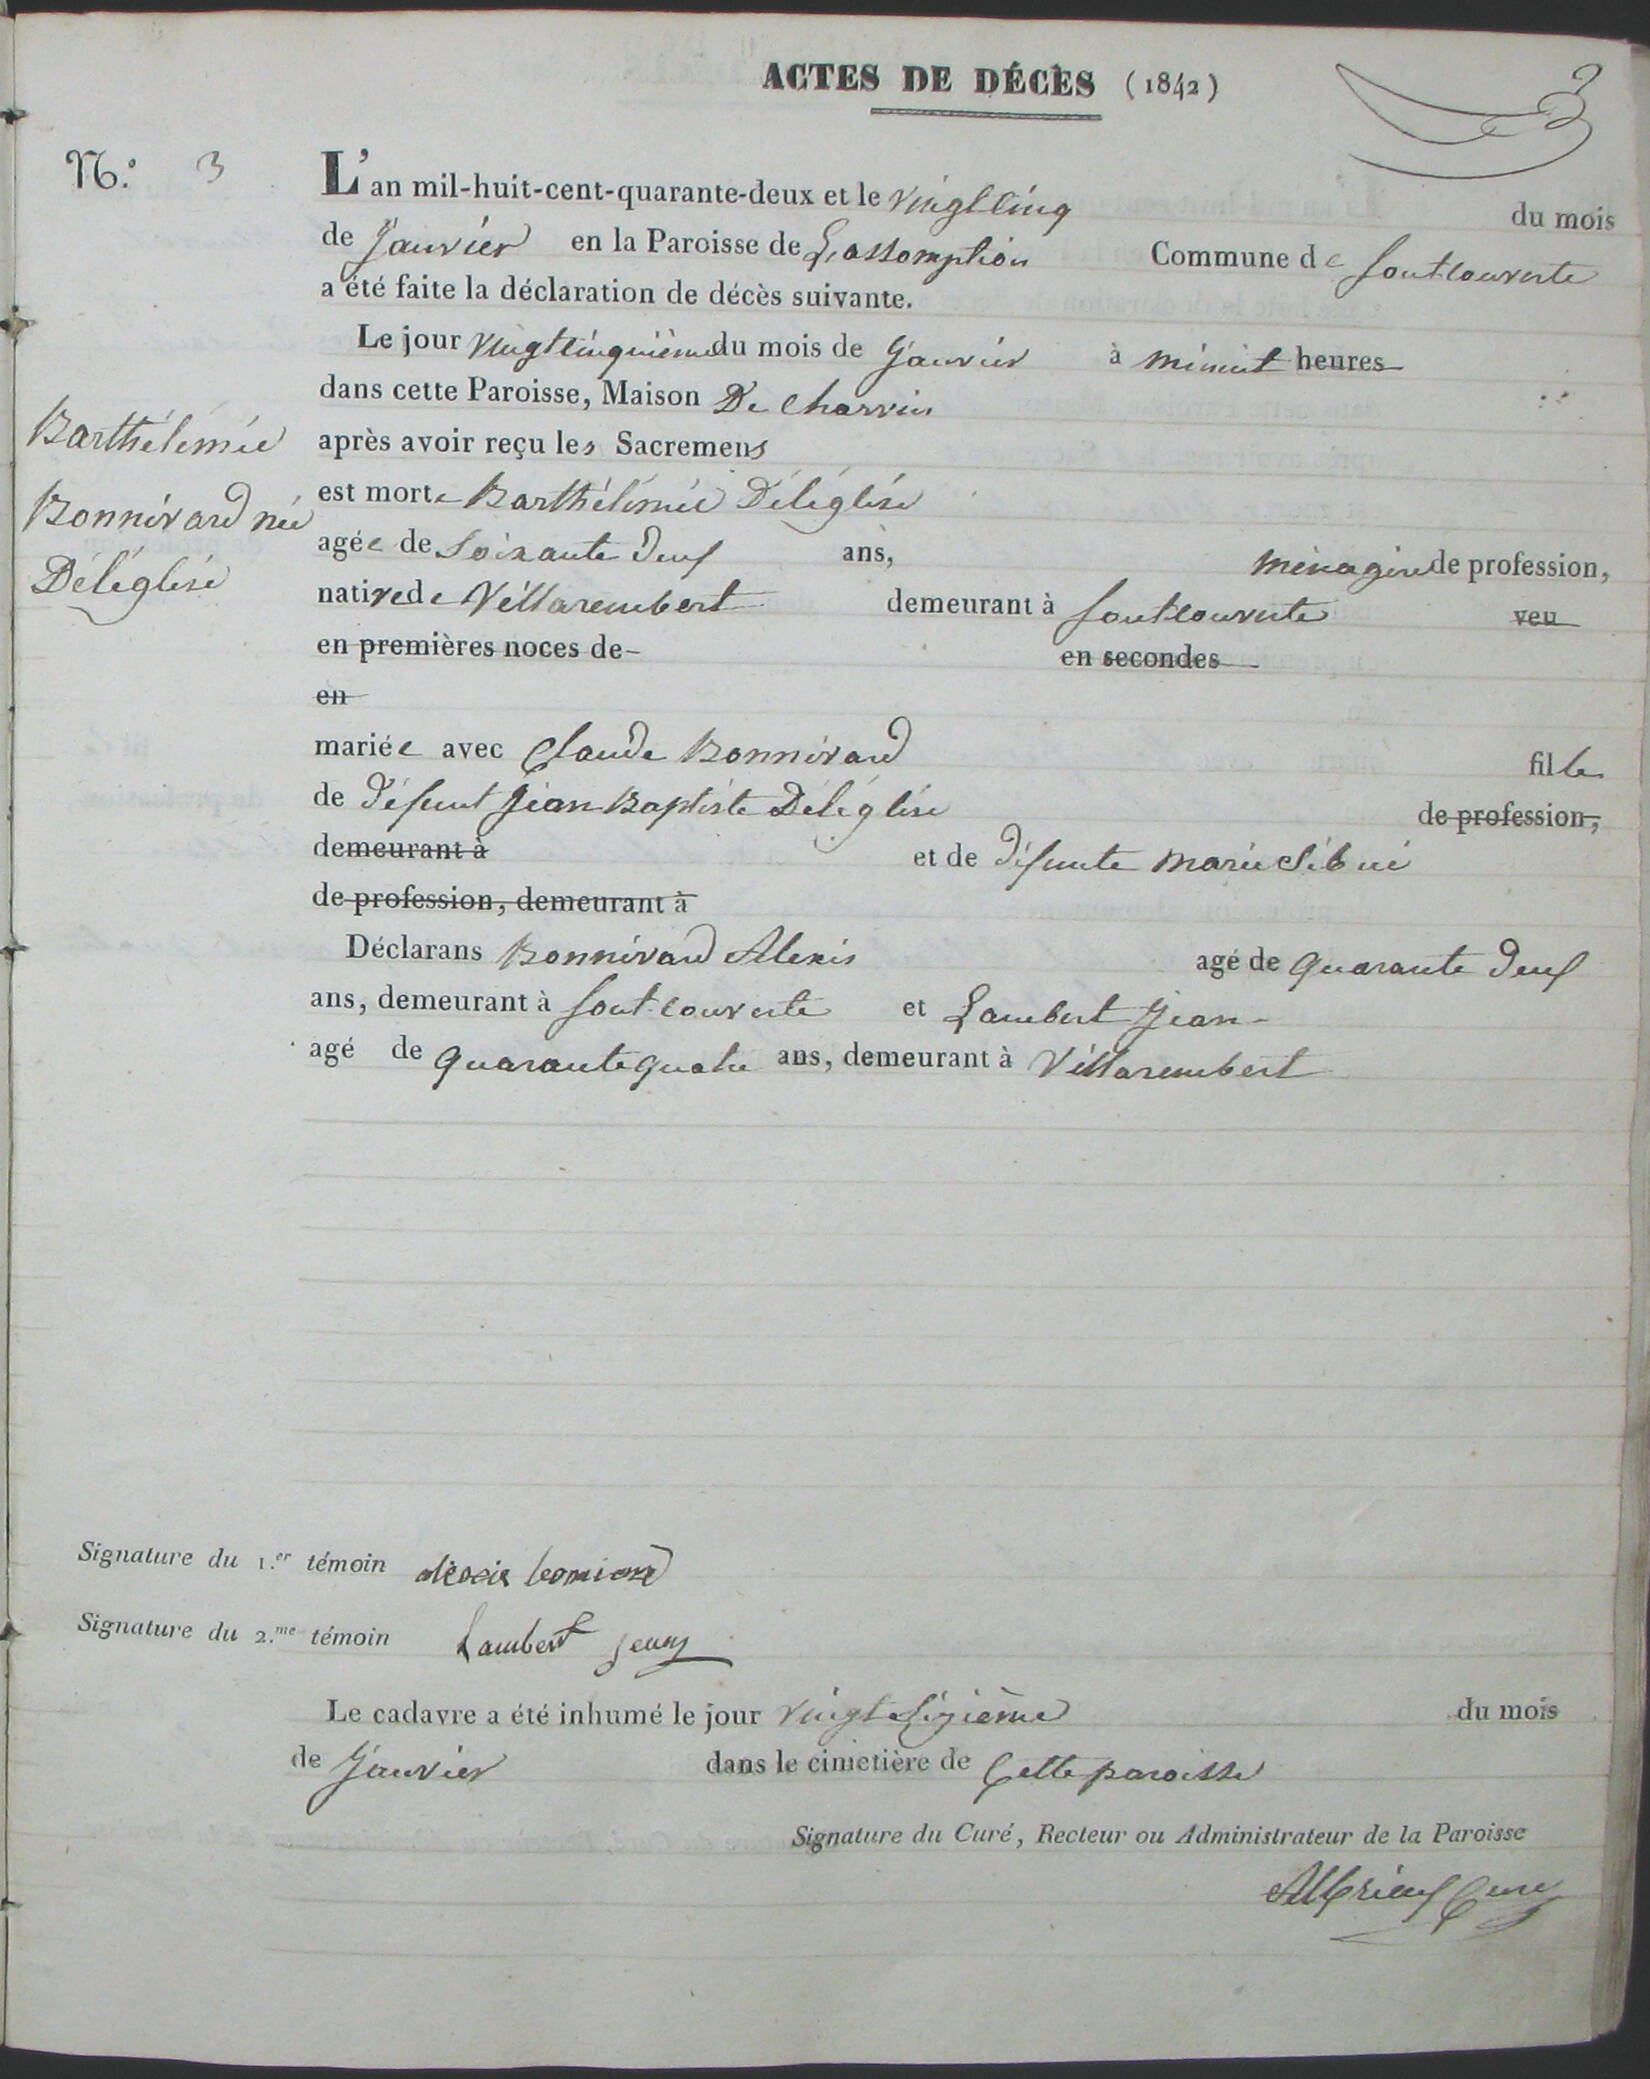 ACTES DE DÉCÈS (1842)
3
N.º 3
L'an mil-huit-cent-quarante-deux et le vingt cinq du mois
de Janvier en la Paroisse de L'assomption Commune de fontcouverte
a été faite la déclaration de décès suivante.
Le jour vingt cinquième du mois de Janvier à minuit heures
dans cette Paroisse, Maison De Charvin
après avoir reçu les Sacremens
est morte Barthélemie Déléglise
agée de Soixante deux ans, ménagère de profession,
native de Villarembert demeurant à fontcouverte veu
en premières noces de en secondes
en
mariée avec Claude Bonnivard fille
de défunt Jean Baptiste Déléglise de profession,
demeurant à et de défunte marie Sibué
de profession, demeurant à
Déclarans Bonnivard Alexis agé de quarante deux
ans, demeurant à fontcouverte et Lambert Jean
agé de quarante quatre ans, demeurant à Villarembert
Barthélemie
Bonnivard née
Déléglise
Signature du 1.er témoin alexis bonivard
Signature du 2.me témoin Lambert jean
Le cadavre a été inhumé le jour vingt sizième du mois
de Janvier dans le cimetière de Cette paroisse
Signature du Curé, Recteur ou Administrateur de la Paroisse
Albrieux Curé